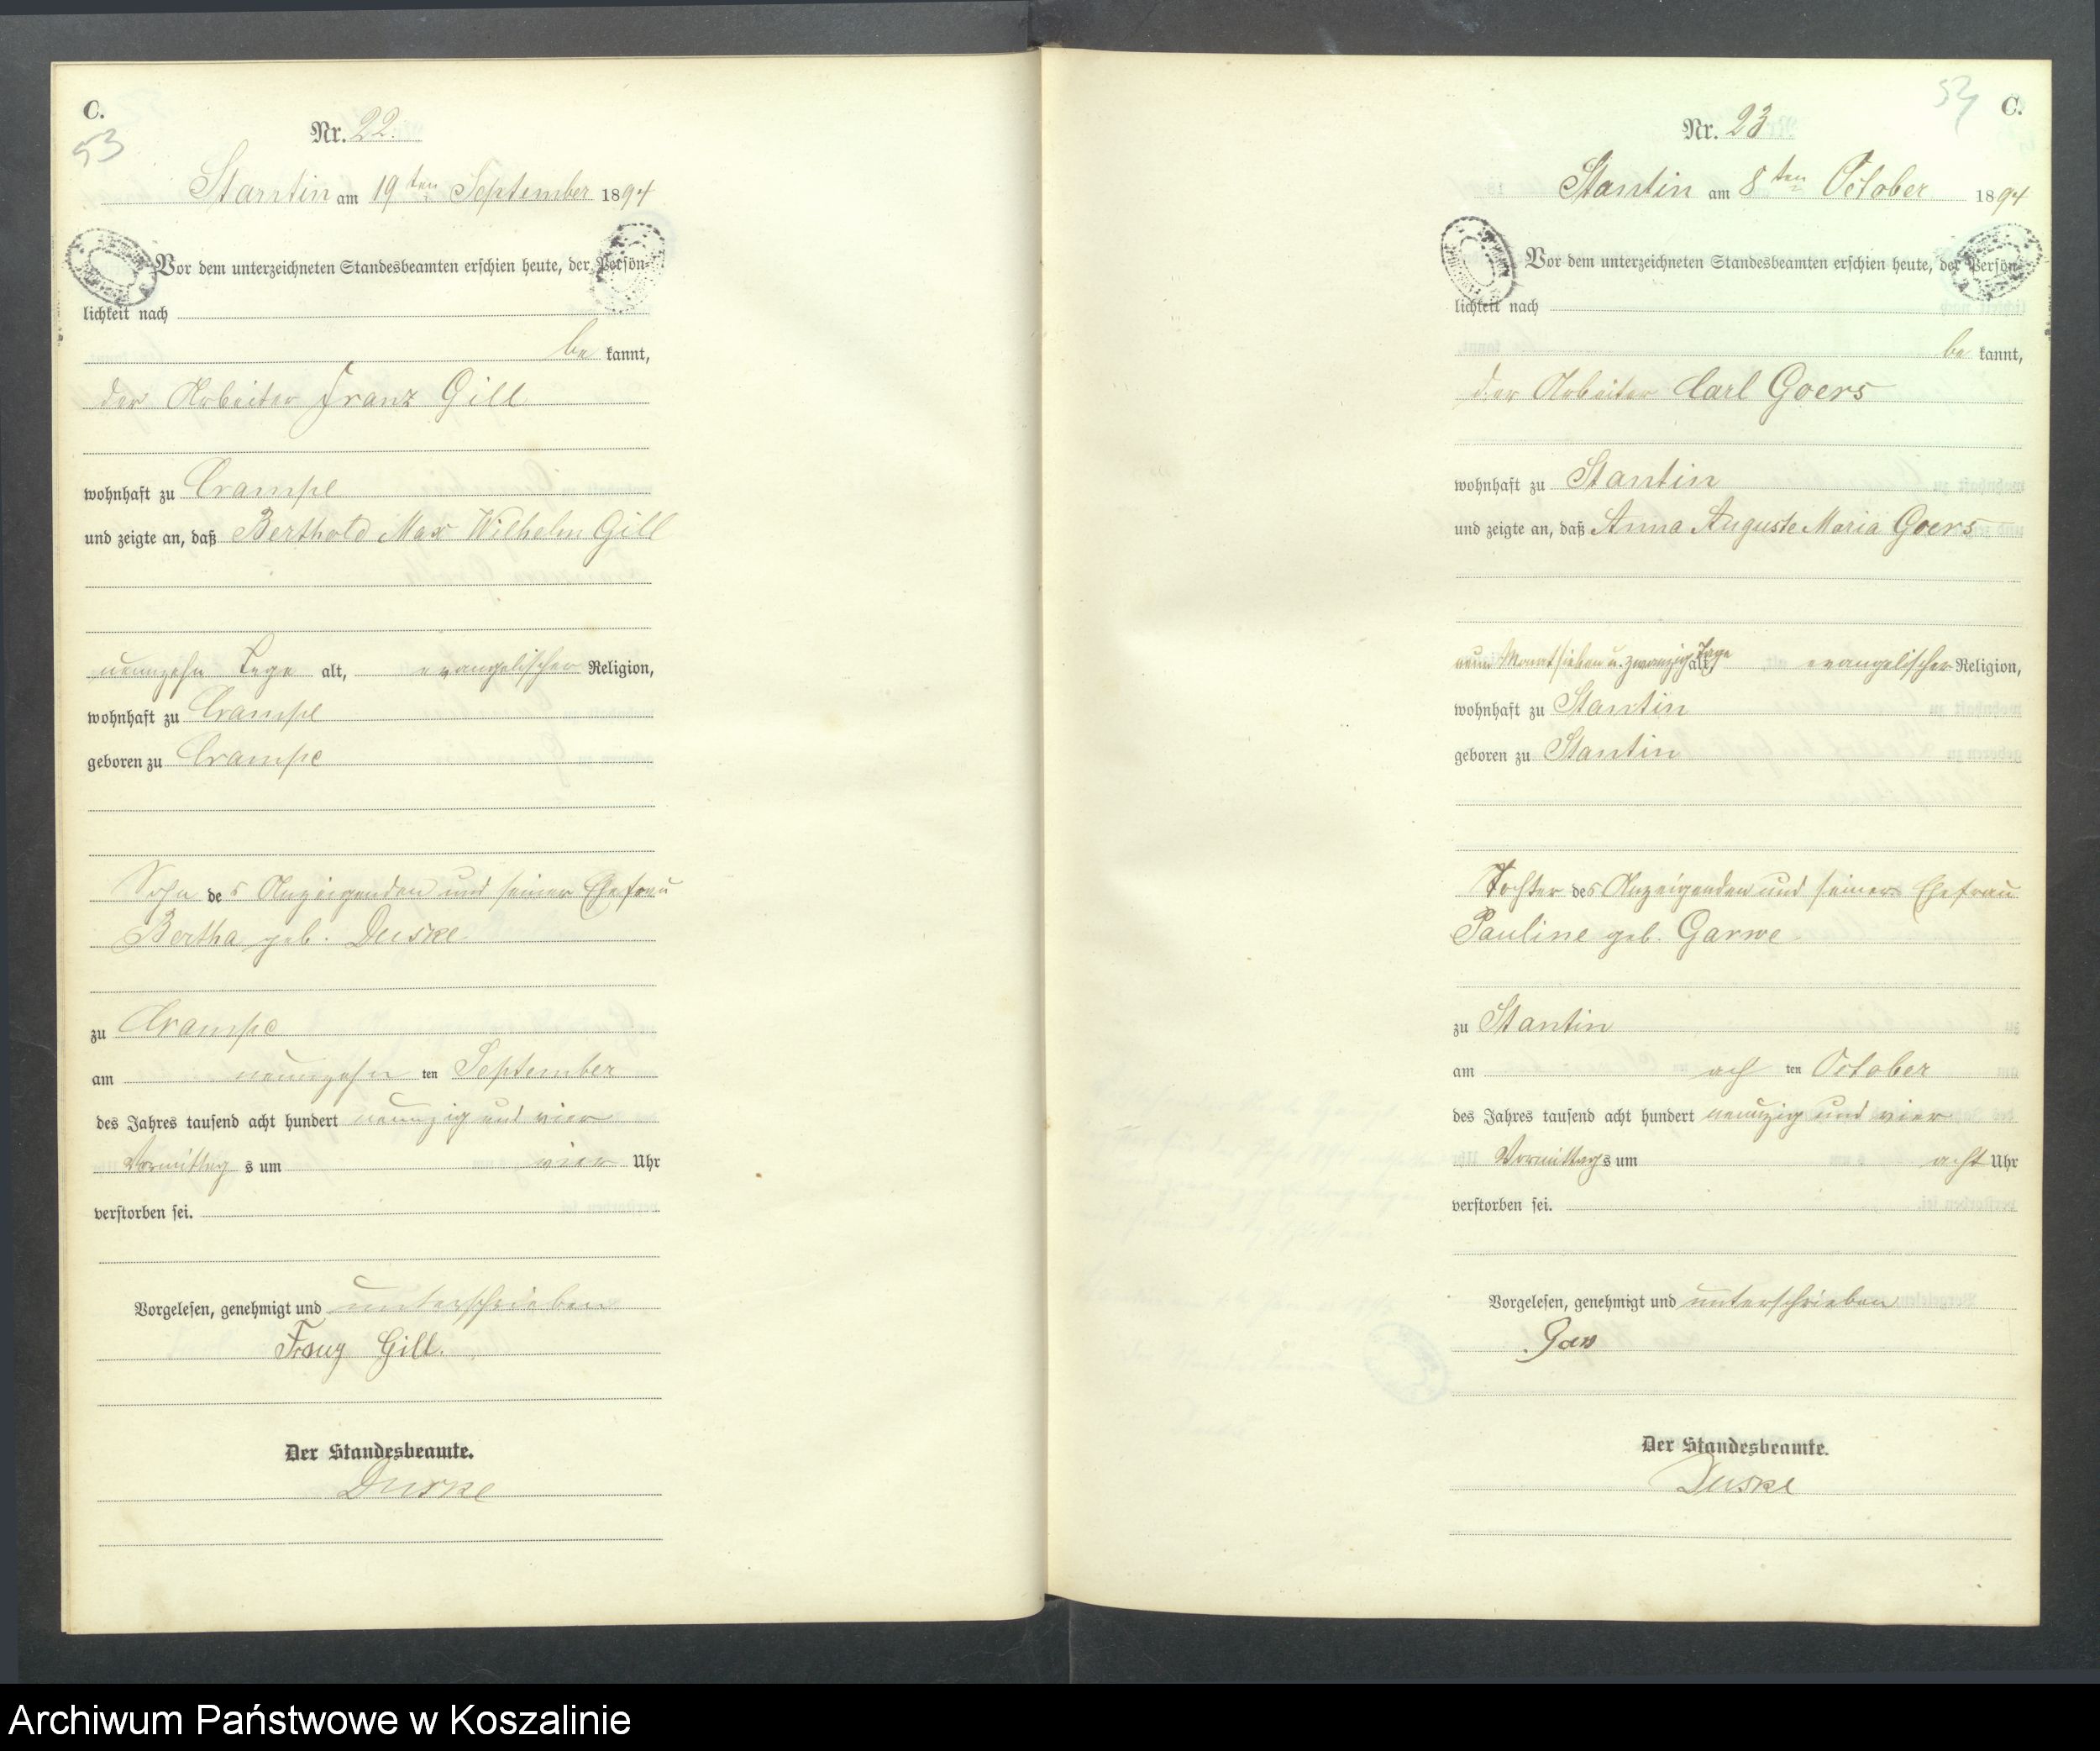 C.
53
Nr. 22.
Stantin am 19ten September 1894
Vor dem unterzeichneten Standesbeamten erschien heute, der Persön-
lichkeit nach
be kannt,
der Arbeiter Franz Gill
wohnhaft zu Crampe
und zeigte an, daß Berthold Max Wilhelm Gill
neunzehn Tage alt, evangelischer Religion,
wohnhaft zu Crampe
geboren zu Crampe
Sohn des Anzeigenden und seiner Ehefrau
Bertha geb. Deiske
zu Crampe
am neunzehn ten September
des Jahres tausend acht hundert neunzig und vier
Vormittag s um vier Uhr
verstorben sei.
Vorgelesen, genehmigt und unterschrieben
Franz Gill.
Der Standesbeamte.
54
C.
Nr. 23
Stantin am 8ten October 1894
Vor dem unterzeichneten Standesbeamten erschien heute, der Persön-
lichkeit nach
be kannt,
der Arbeiter Carl Goers
wohnhaft zu Stantin
und zeigte an, daß Anna Auguste Maria Goers
neun Monat sieben u. zwanzig Tage alt, evangelischer Religion,
wohnhaft zu Stantin
geboren zu Stantin
Tochter des Anzeigenden und seiner Ehefrau
Pauline geb. Garwe
zu Stantin
am ach ten October
des Jahres tausend acht hundert neunzig und vier
Vormittags um acht Uhr
verstorben sei.
Vorgelesen, genehmigt und unterschrieben
Der Standesbeamte.
Archiwum Państwowe w Koszalinie